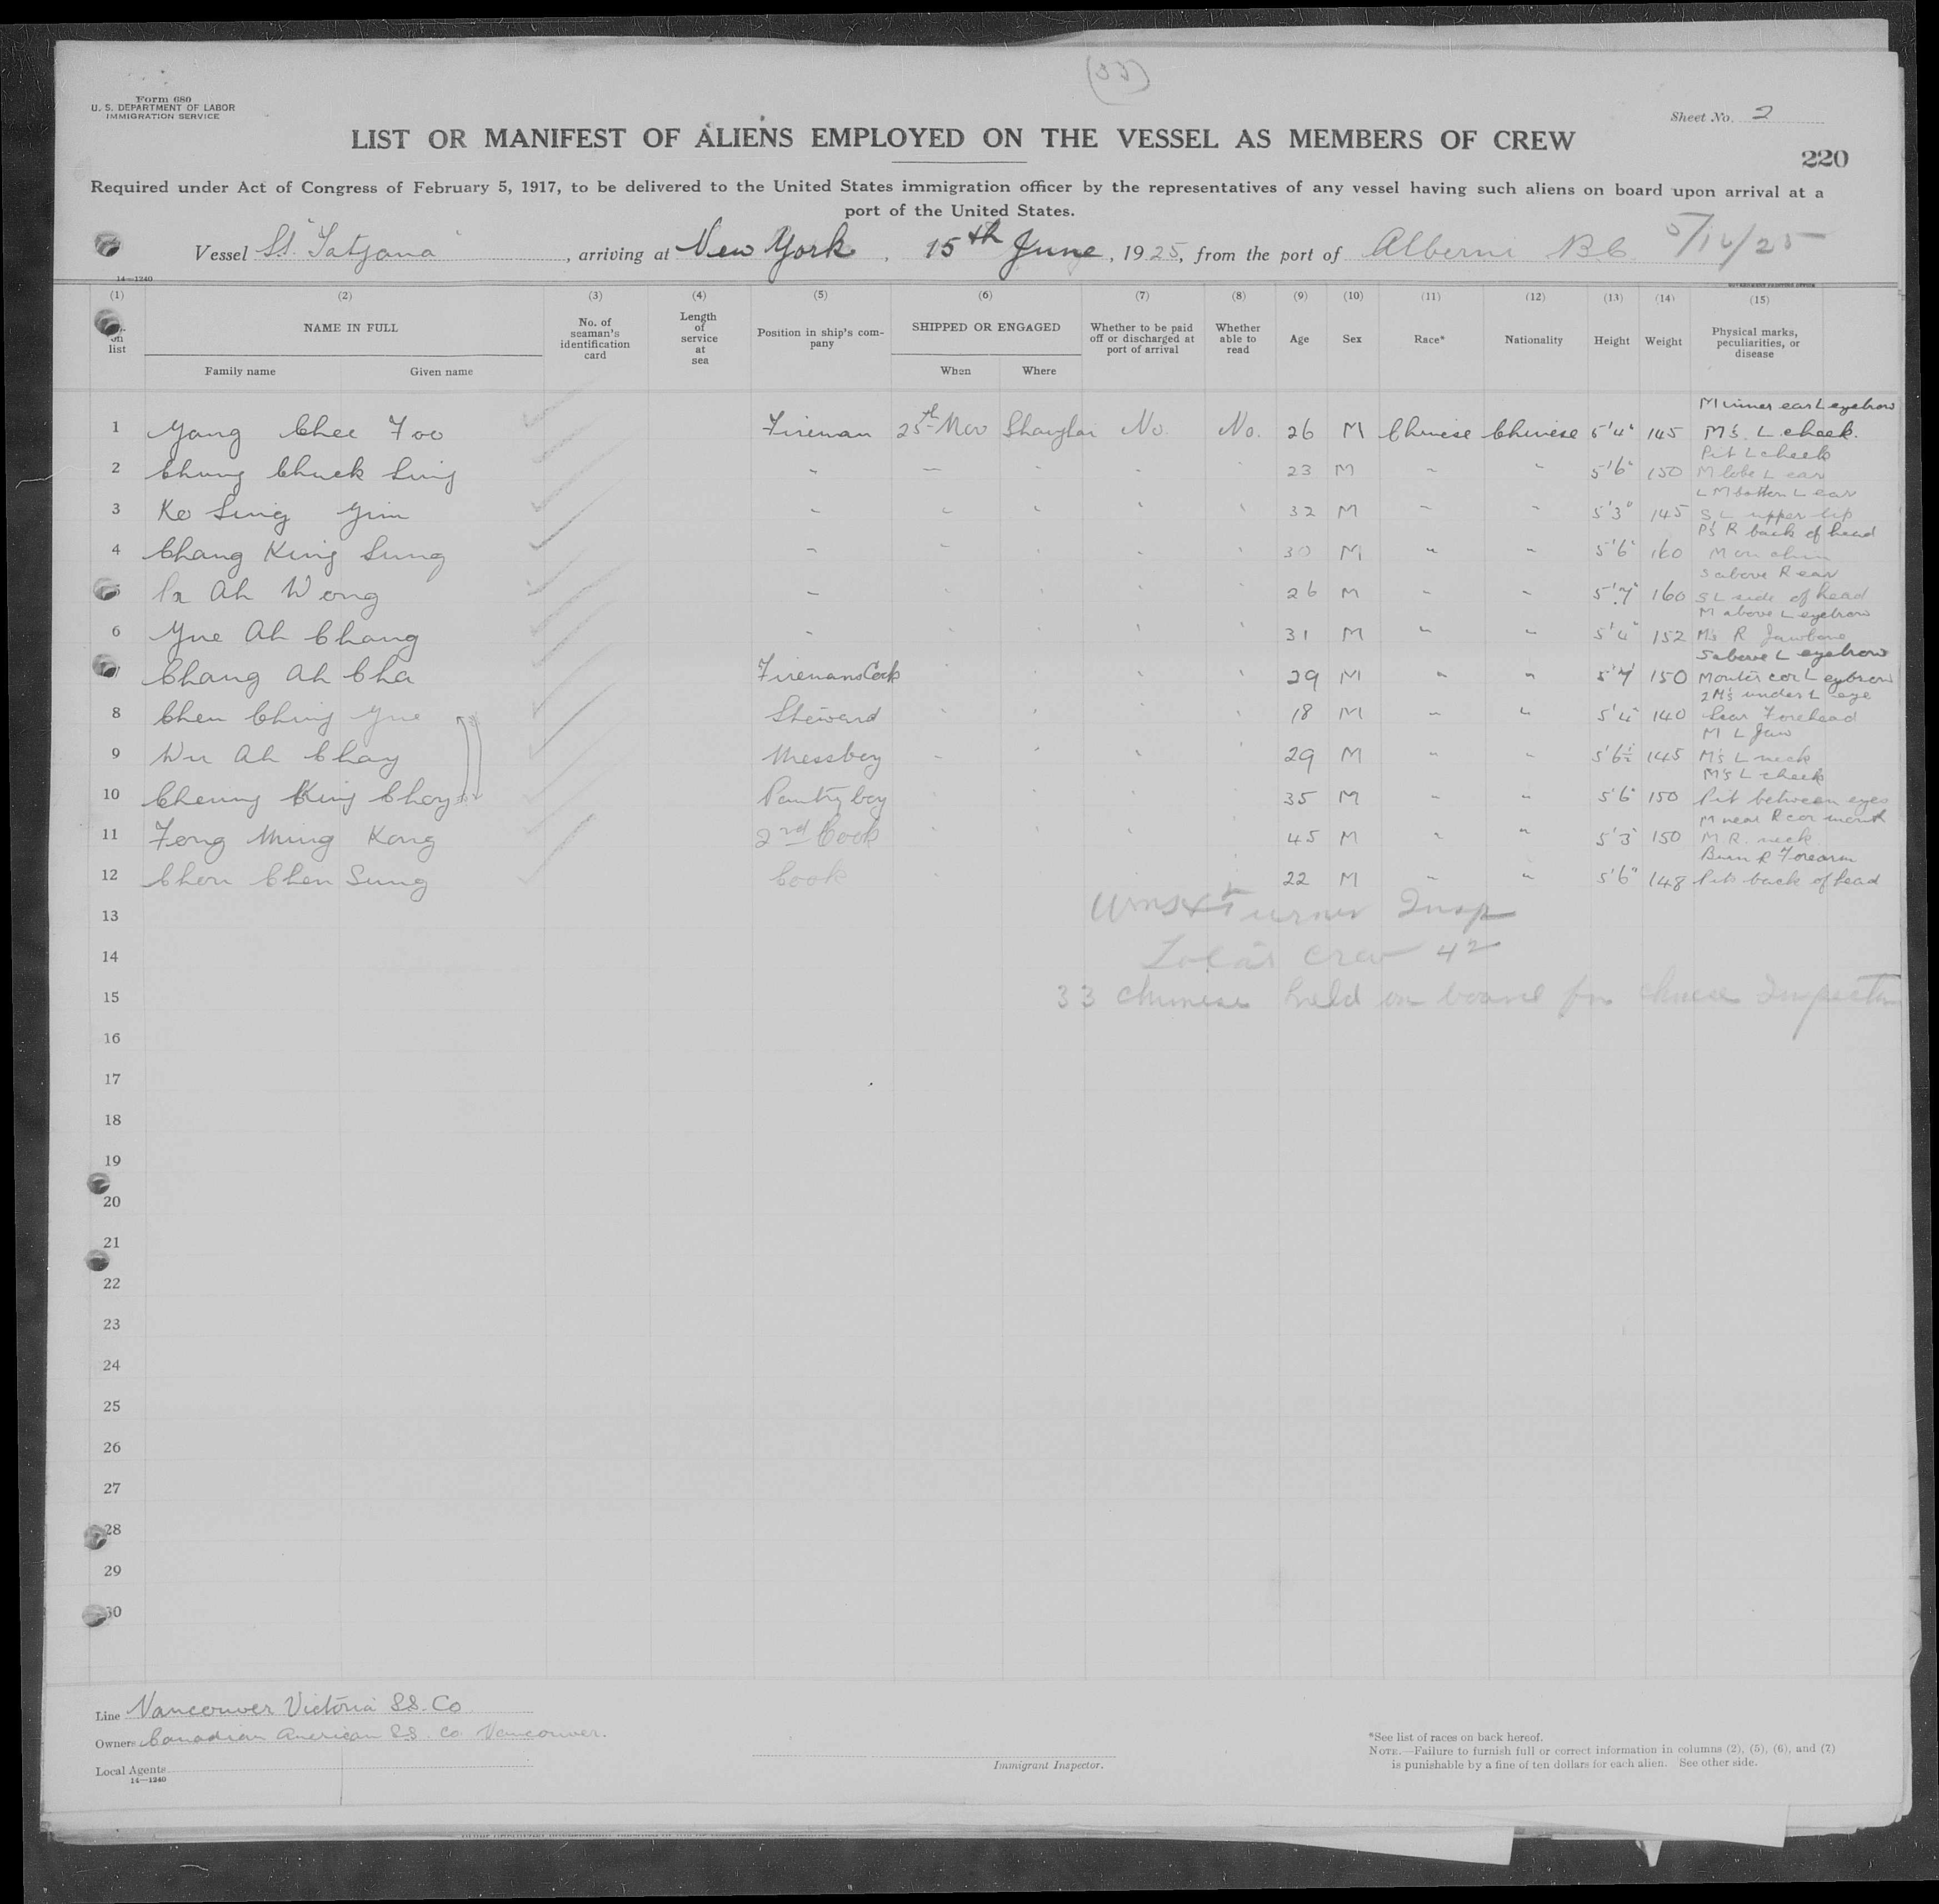 (33)
Form 680
U. S. DEPARTMENT OF LABOR
IMMIGRATION SERVICE
Sheet No. 2
LIST OR MANIFEST OF ALIENS EMPLOYED ON THE VESSEL AS MEMBERS OF CREW
220
Required under Act of Congress of February 5, 1917, to be delivered to the United States immigration officer by the representatives of any vessel having such aliens on board upon arrival at a
port of the United States.
Vessel SS. "Tatjana", arriving at New York, 15th June, 1925, from the port of Alberni B.C. 5/16/25
14—1240
GOVERNMENT PRINTING OFFICE
(1) (2) (3) (4) (5) (6) (7) (8) (9) (10) (11) (12) (13) (14) (15)
on list NAME IN FULL Family name Given name No. of seaman's identification card Length of service at sea Position in ship's company SHIPPED OR ENGAGED When Where Whether to be paid off or discharged at port of arrival Whether able to read Age Sex Race* Nationality Height Weight Physical marks, peculiarities, or disease
M inner ear L eyebrow
1 Yang Chee Foo Fireman 25th Nov Shanghai No. No. 26 M Chinese Chinese 5'4" 145 M's L. cheek.
Pit L cheek
2 Chung Chuck Sing " — " " " 23 M " " 5'6" 150 M lobe L ear
L M bottom L ear
3 Ko Sing Yim " " " " " 32 M " " 5'3" 145 S L upper lip
P's R back of head
4 Chang King Sung " " " " " 30 M " " 5'6" 160 M on chin
S above R ear
5 Ah Wong " " " " " 26 M " " 5'7" 160 S L side of head
M above L eyebrow
6 Yue Ah Chang " " " " " 31 M " " 5'4" 152 M's R Jawbone
S above L eyebrow
7 Chang Ah Cha Firemans Cook " " " " 29 M " " 5'7" 150 M outer cor L eyebrow
2 M's under L eye
8 Chen Ching Yue Steward " " " " 18 M " " 5'4" 140 Scar Forehead
M L Jaw
9 Wu Ah Chay Messboy " " " " 29 M " " 5'6½ 145 M's L neck
M's L cheek
10 Cheung King Choy Pantry boy " " " " 35 M " " 5'6" 150 Pit between eyes
M near R cor mouth
11 Fong Ming Kong 2nd Cook " " " " 45 M " " 5'3" 150 M R. neck
Burn R Forearm
12 Chen Chen Sung Cook " 22 M " " 5'6" 148 Pits back of head
13 Turner Insp
14 Total Crew 42
15 33 Chinese held on board for Chinese Inspection
16
17
18
19
20
21
22
23
24
25
26
27
28
29
30
Line Vancouver Victoria S.S. Co
Owners Canadian American S.S. Co Vancouver.
Local Agents
14—1240
Immigrant Inspector.
*See list of races on back hereof.
NOTE.—Failure to furnish full or correct information in columns (2), (5), (6), and (7)
is punishable by a fine of ten dollars for each alien. See other side.